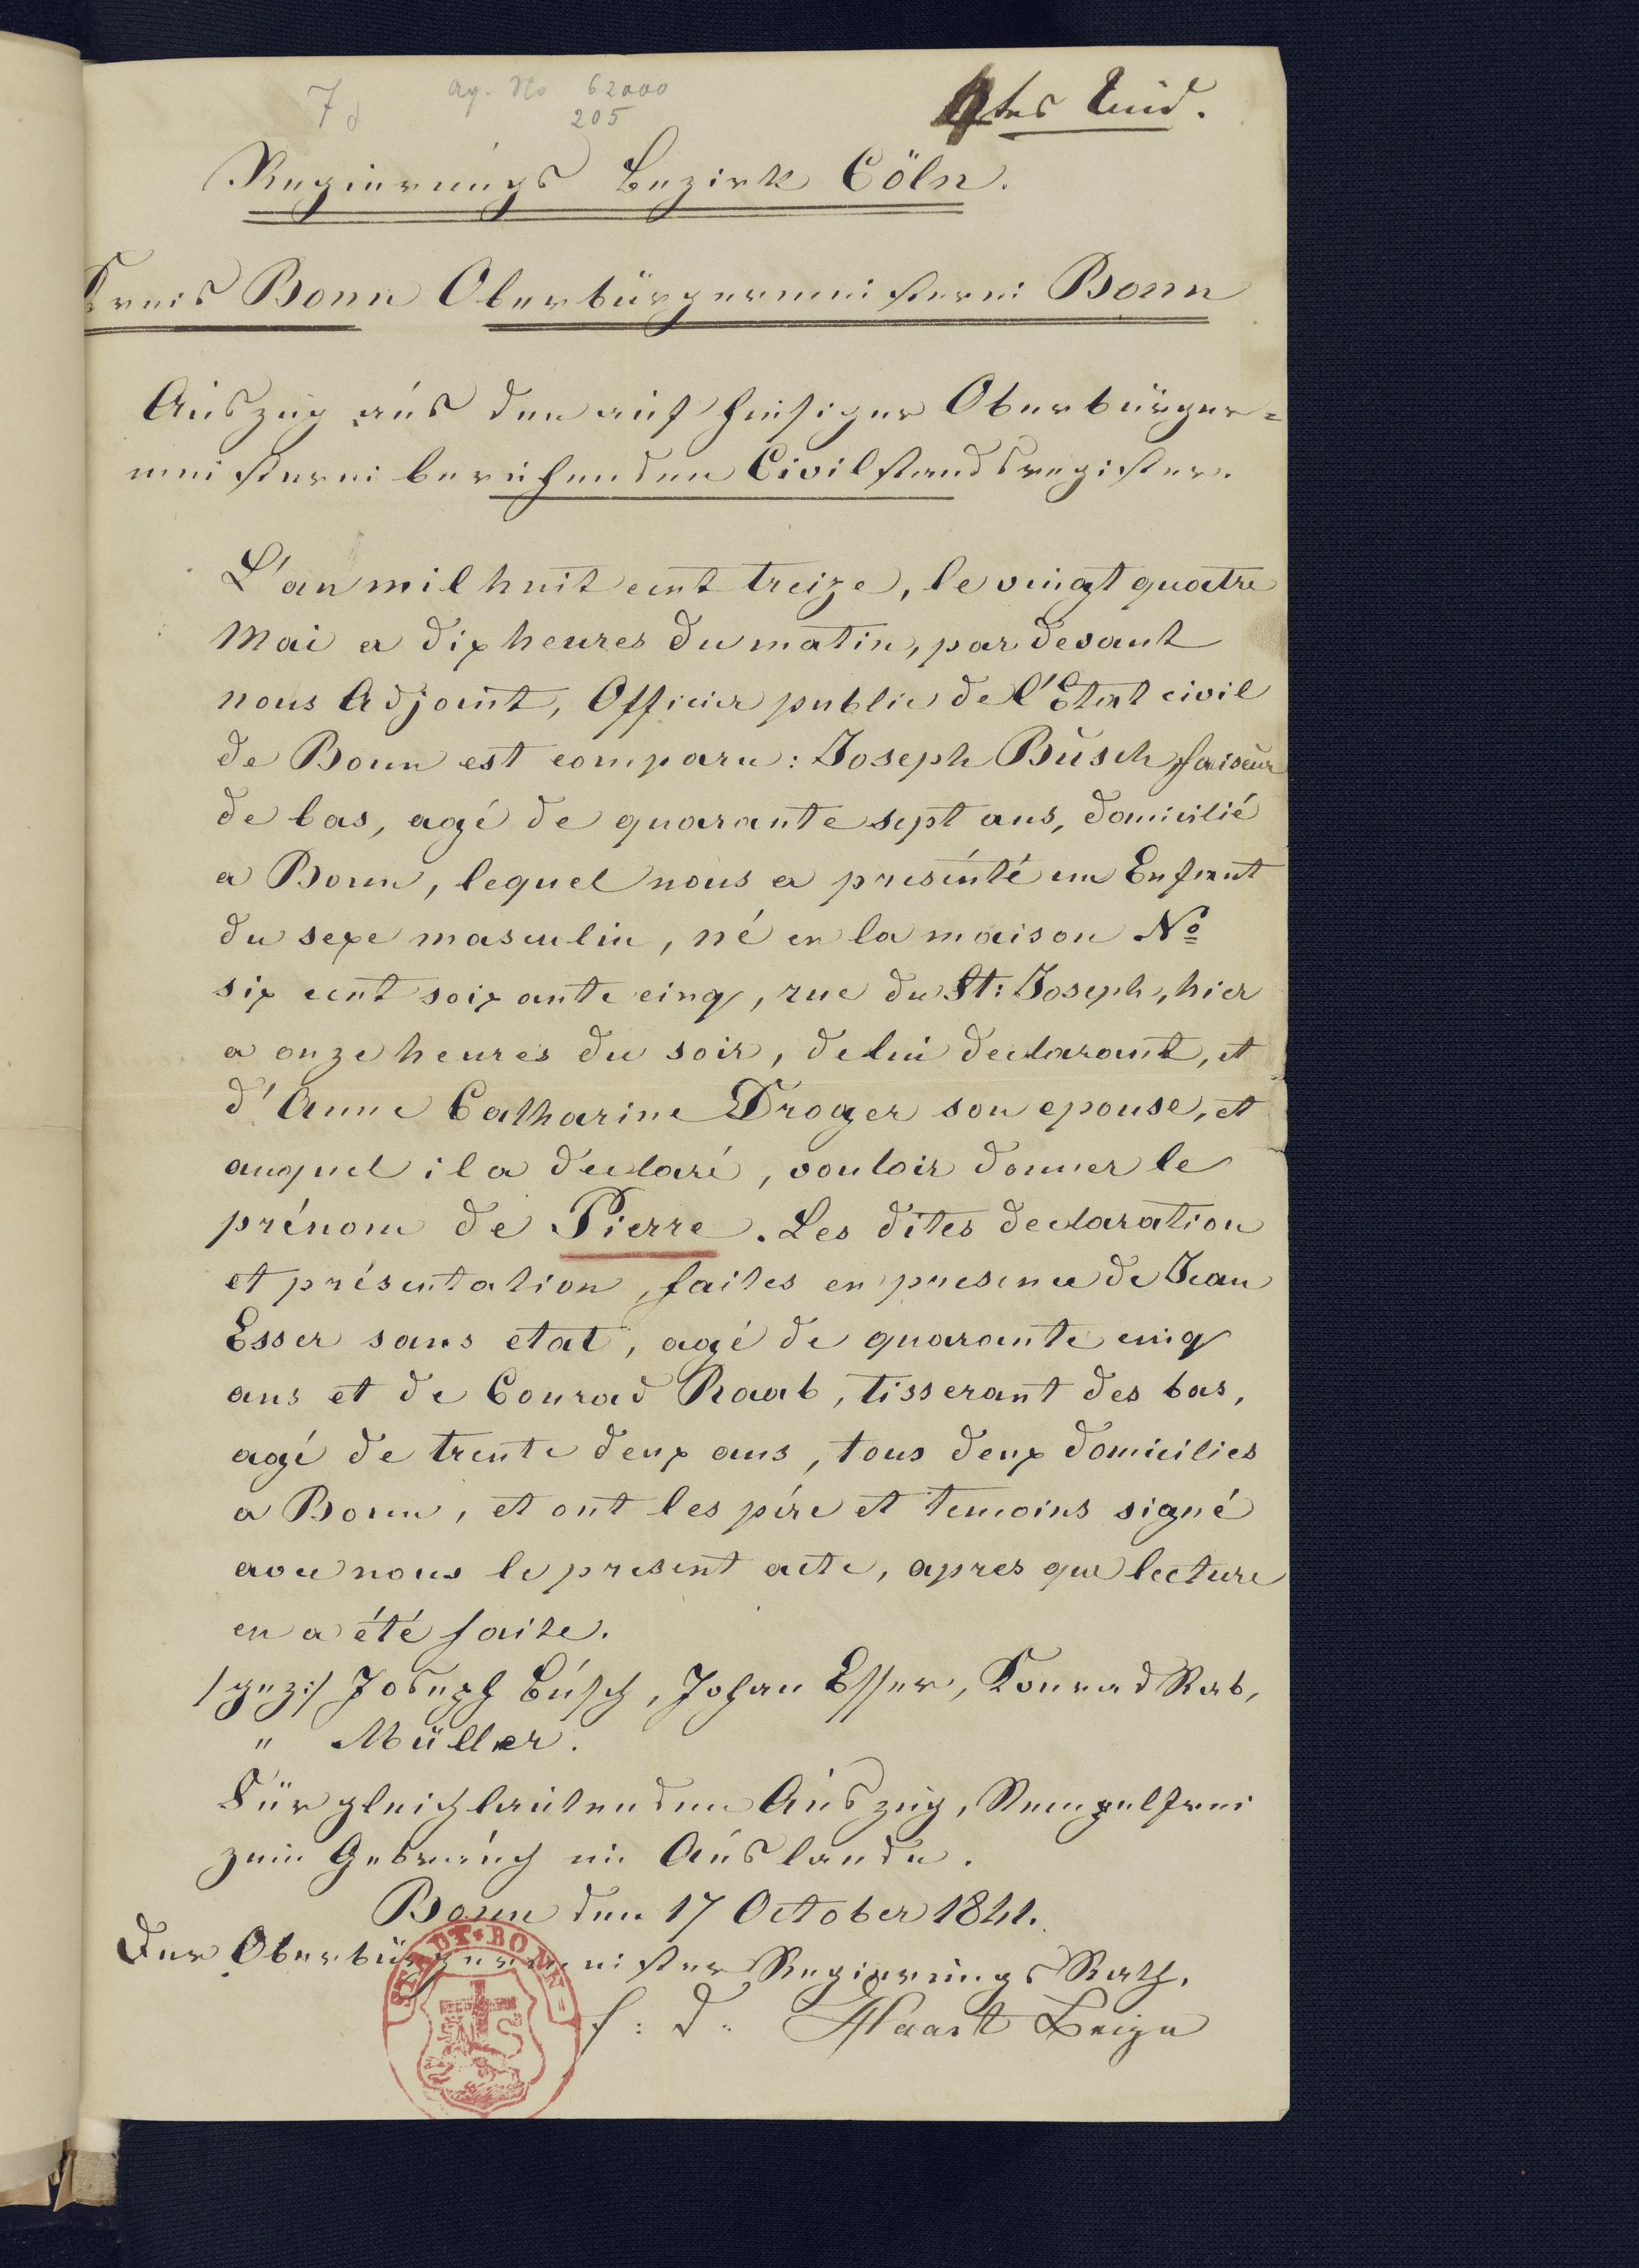 7d
ag. No 62000
205
4tes Kind.
Regierungs Bezirk Cöln.
Kreis Bonn Oberbürgermeisterei Bonn
Auszug aus den auf hiesiger Oberbürger=
meisterei beruhenden Civilstandsregistern
L'an mil huit cent treize, le vingt quatre
Mai a dix heures du matin, par devant
nous Adjoint, Officier public de l'Etat civil
de Bonn est comparu: Joseph Busch faiseur
de bas, agé de quarante sept ans, domicilié
a Bonn, lequel nous a présénté un Enfant
du sexe masculin, né en la maison No
six cent soixante cinq, rue du St: Joseph, hier
a onze heures du soir, de lui declarant, et
d'Anne Catharine Droger son epouse, et
auquel il a déclaré, vouloir donner le
prénom de Pierre. Les dites declaration
et présentation, faites en presence de Jean
Esser sans etat, agé de quarante cinq
ans et de Conrad Raab, tisserant des bas,
agé de trente deux ans, tous deux domicilies
a Bonn, et ont les pére et temoins signé
avec nous le present acte, apres que lecture
en a été faite.
/gez:/ Joseph Busch, Johan Esser, Konrad Rab,
" Müller.
Für gleichlautenden Auszug, Stempelfrei
zum Gebrauch im Auslande.
Bonn den 17 October 1841.
Der Oberbürgermeister Regierungs Rath.
STADT BONN
f: d.